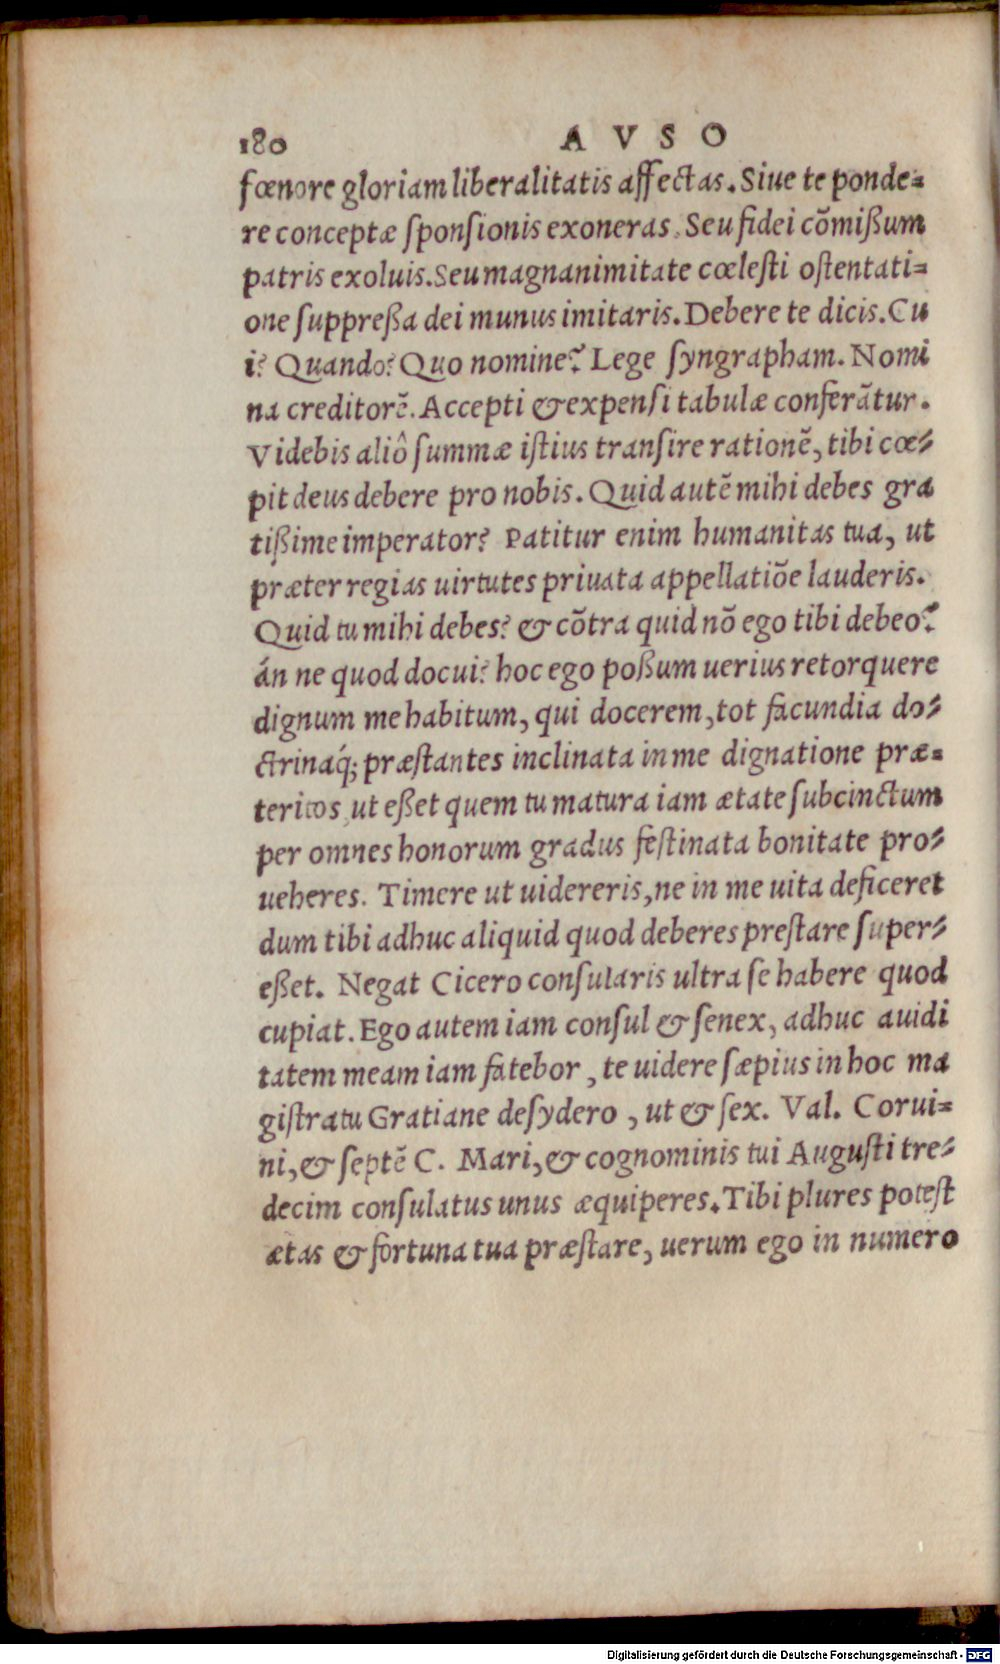 180 AVSO
fœnore gloriam liberalitatis affectas. Siue te ponde=
re conceptæ sponsionis exoneras. Seu fidei cõmißum
patris exoluis. Seu magnanimitate cœlesti ostentati=
one suppreßa dei munus imitaris. Debere te dicis. Cu
i? Quando? Quo nomine? Lege syngrapham. Nomi
na creditorẽ. Accepti & expensi tabulæ conferãtur.
Videbis aliô summæ istius transire rationẽ, tibi cœ=
pit deus debere pro nobis. Quid autẽ mihi debes gra
tißime imperator? Patitur enim humanitas tua, ut
præter regias uirtutes priuata appellatiõe lauderis.
Quid tu mihi debes? & cõtra quid nõ ego tibi debeo?
án ne quod docui? hoc ego poßum uerius retorquere
dignum me habitum, qui docerem, tot facundia do=
ctrinaq́; præstantes inclinata in me dignatione præ=
teritos, ut eßet quem tu matura iam ætate subcinctum
per omnes honorum gradus festinata bonitate pro=
ueheres. Timere ut uidereris, ne in me uita deficeret
dum tibi adhuc aliquid quod deberes prestare super=
eßet. Negat Cicero consularis ultra se habere quod
cupiat. Ego autem iam consul & senex, adhuc auidi
tatem meam iam fatebor, te uidere sæpius in hoc ma
gistratu Gratiane desydero, ut & sex. Val. Corui=
ni, & septẽ C. Mari, & cognominis tui Augusti tre=
decim consulatus unus æquiperes. Tibi plures potest
ætas & fortuna tua præstare, uerum ego in numero
Digitalisierung gefördert durch die Deutsche Forschungsgemeinschaft - DFG